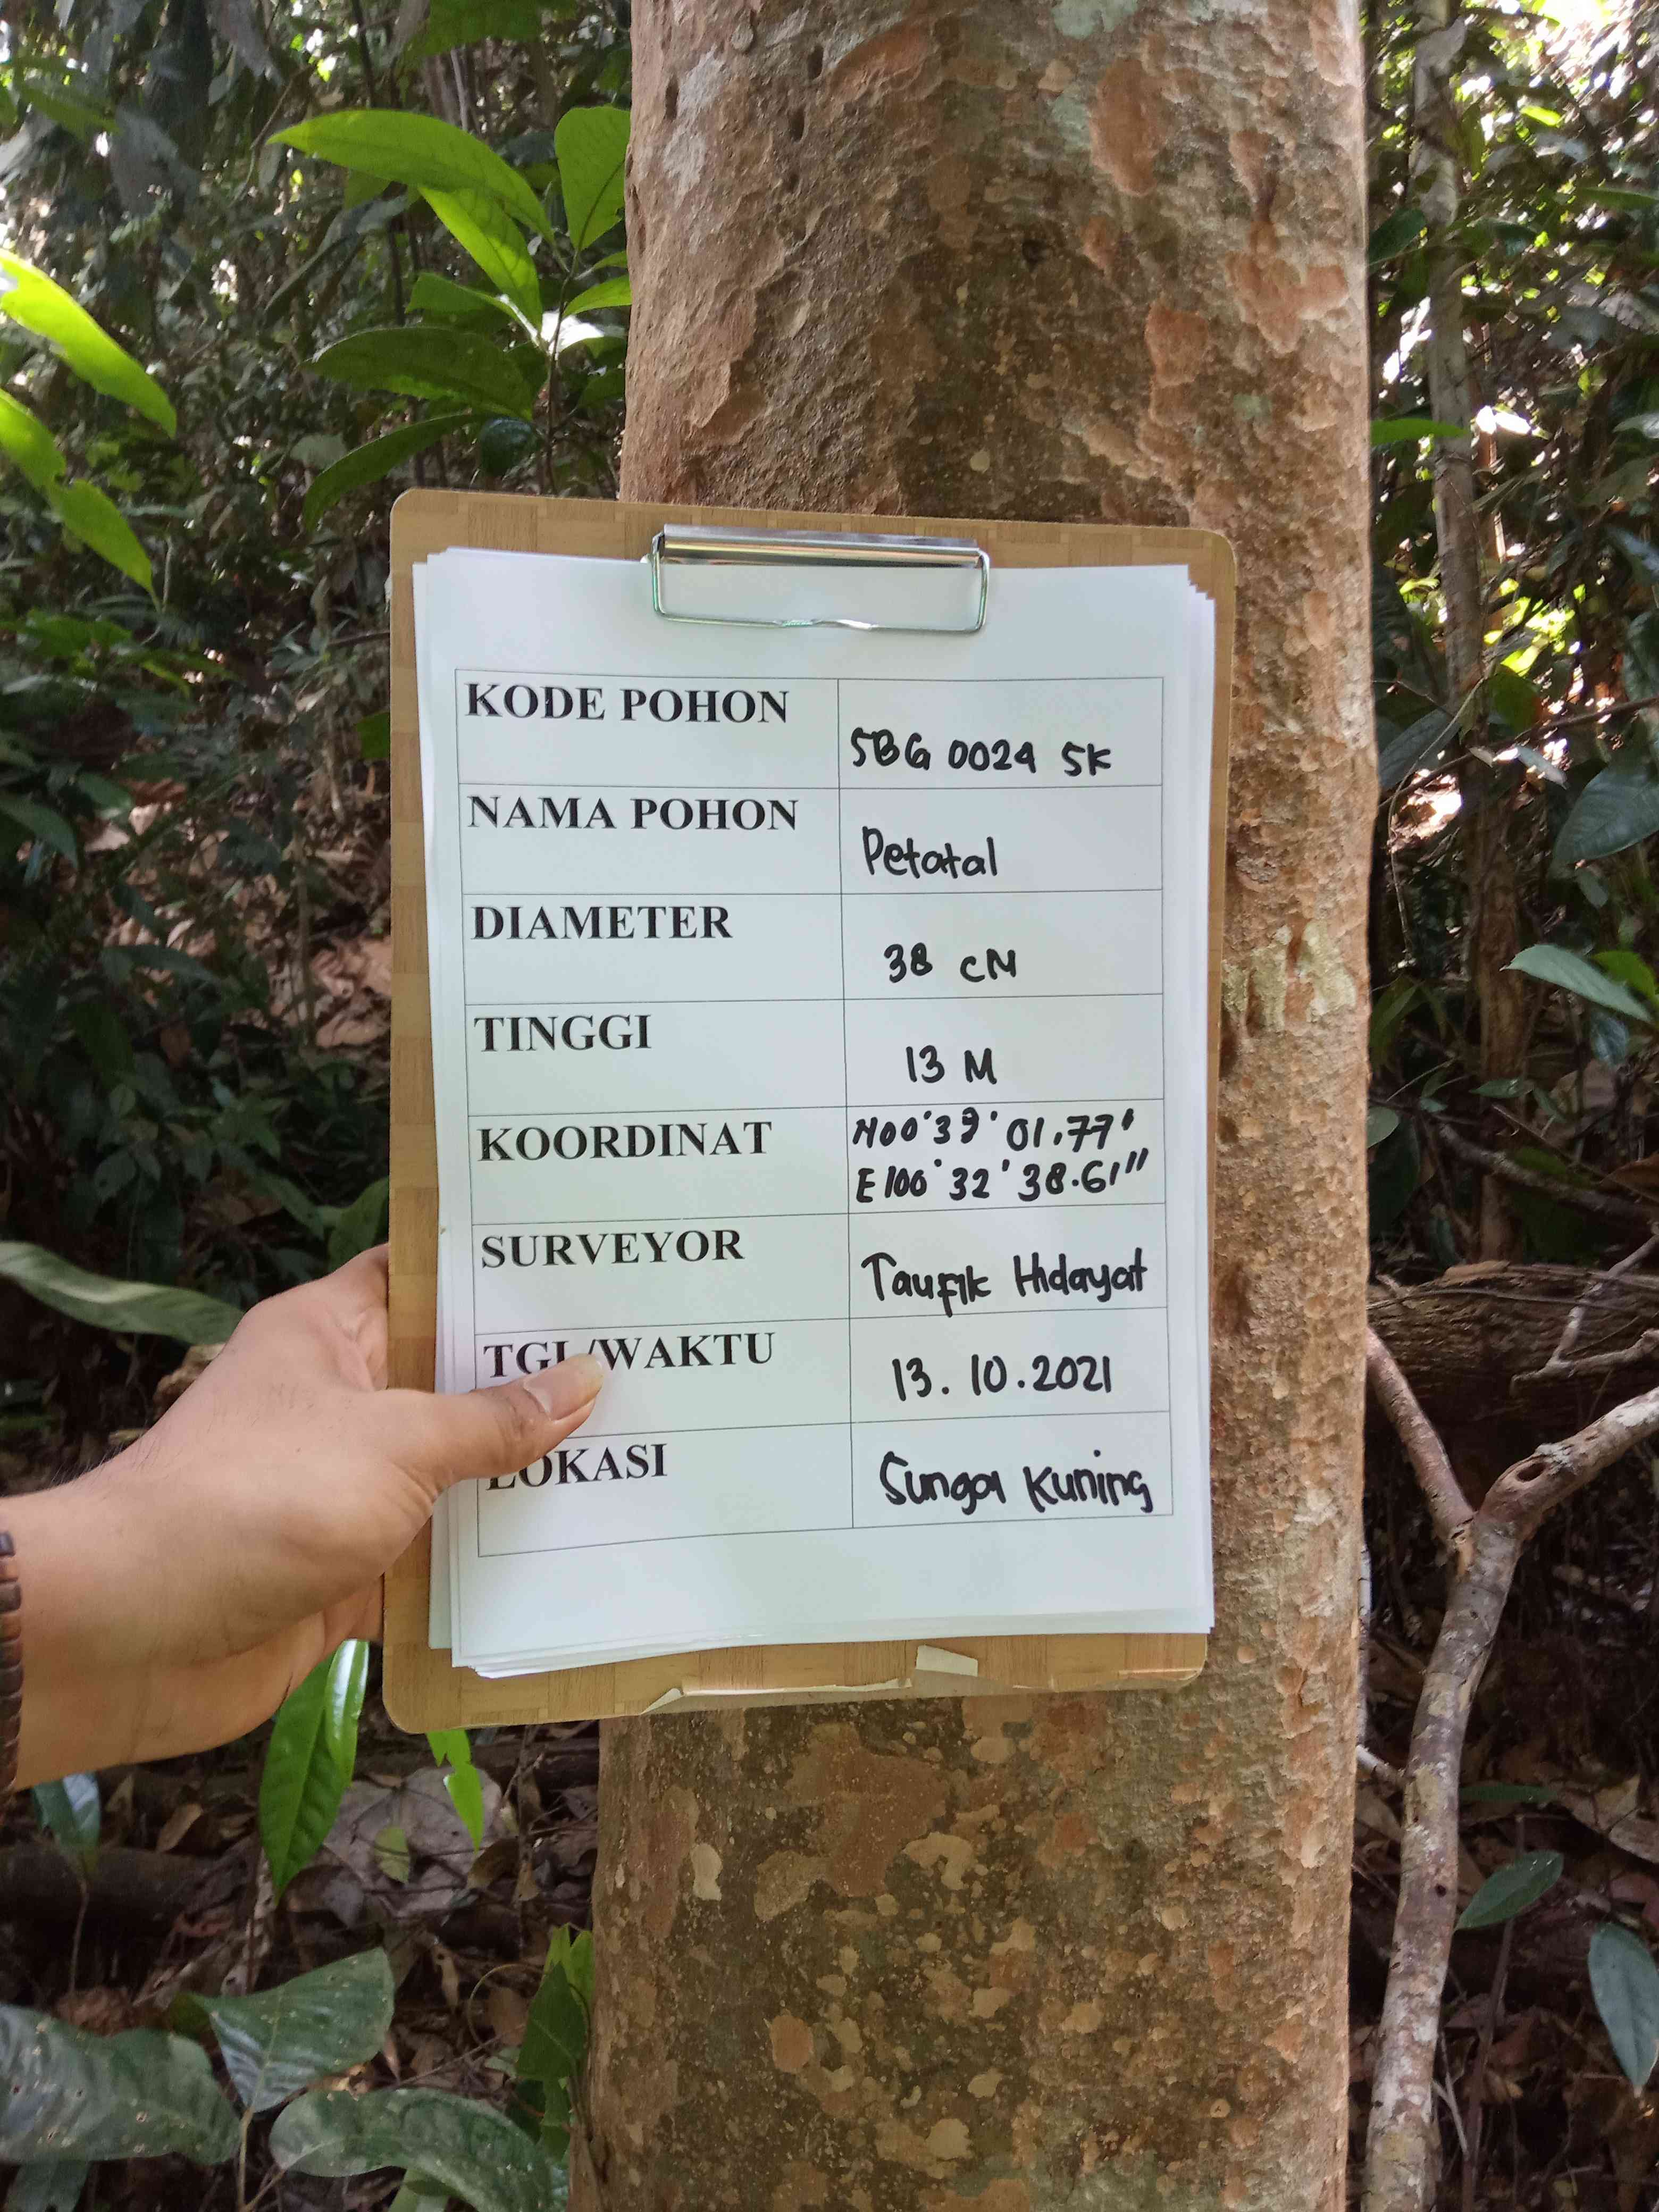 KODE POHON
SBG 0024 SK
NAMA POHON
Petatal
DIAMETER
38 CM
TINGGI
13 M
KOORDINAT
N00°39'01.77"
E100°32'38.61"
SURVEYOR
Taufik Hidayat
TGL/WAKTU
13.10.2021
LOKASI
Sungai Kuning